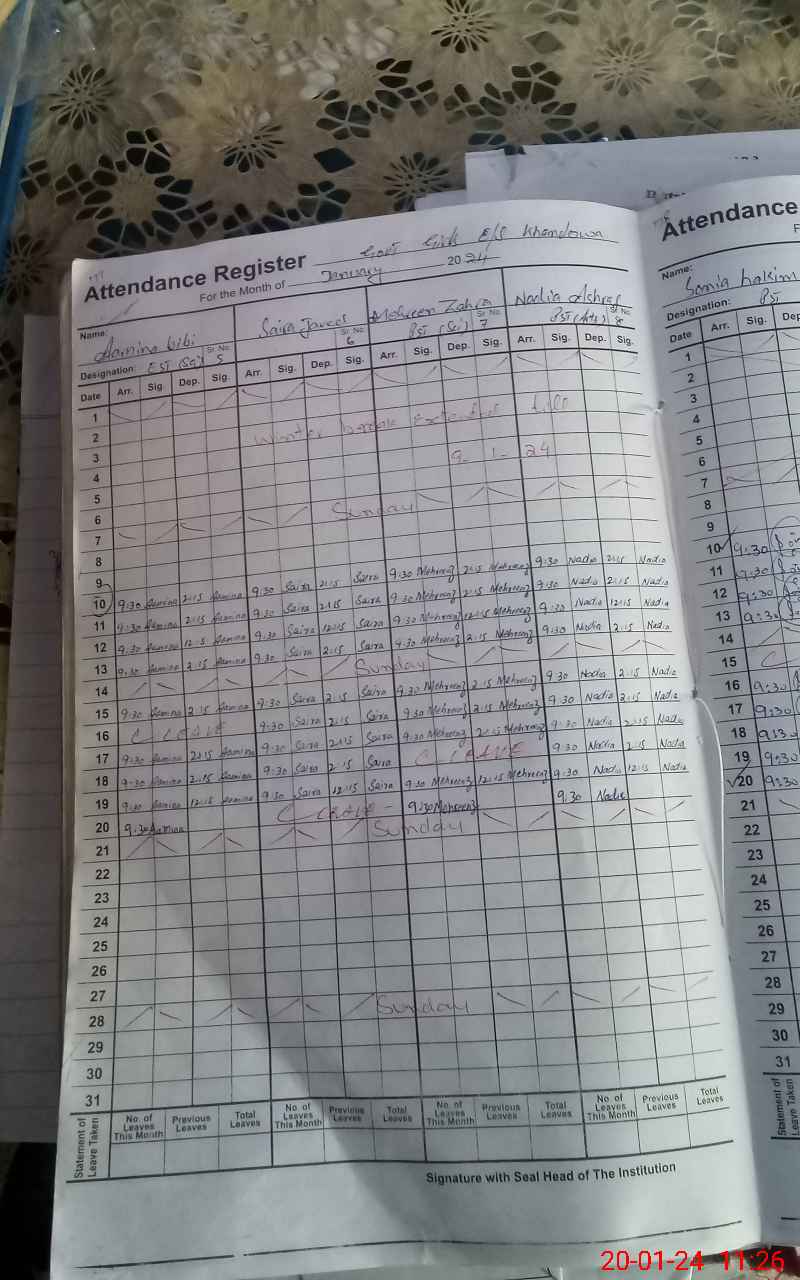 Attendance Register Govt Girls E/S Khandowa
For the Month of January 2024
Name: Aamina bibi Saira Javed Mehreen Zahra Nadia Ashraf
Designation: EST (Sci) Sr No. 5 Sr No. 6 PST (Sci) Sr No. 7 PST (Arts) Sr No. 8
Date Arr. Sig. Dep. Sig. Arr. Sig. Dep. Sig. Arr. Sig. Dep. Sig. Arr. Sig. Dep. Sig.
1
2
3 Winter till
4 9-1-24
5
6
7 Sunday
8
9
10 9:30 Aamina 2:15 Aamina 9:30 Saira 2:15 Saira 9:30 Mehreenz 2:15 Mehreenz 9:30 Nadia 2:15 Nadia
11 9:30 Aamina 2:15 Aamina 9:30 Saira 2:15 Saira 9:30 Mehreenz 2:15 Mehreenz 9:30 Nadia 2:15 Nadia
12 9:30 Aamina 12:15 Aamina 9:30 Saira 12:15 Saira 9:30 Mehreenz 12:15 Mehreenz 9:30 Nadia 12:15 Nadia
13 9:30 Aamina 2:15 Aamina 9:30 Saira 2:15 Saira 9:30 Mehreenz 2:15 Mehreenz 9:30 Nadia 2:15 Nadia
14 Sunday
15 9:30 Aamina 2:15 Aamina 9:30 Saira 2:15 Saira 9:30 Mehreenz 2:15 Mehreenz 9:30 Nadia 2:15 Nadia
16 C-LEAVE 9:30 Saira 2:15 Saira 9:30 Mehreenz 2:15 Mehreenz 9:30 Nadia 2:15 Nadia
17 9:30 Aamina 2:15 Aamina 9:30 Saira 2:15 Saira 9:30 Mehreenz 2:15 Mehreenz 9:30 Nadia 2:15 Nadia
18 9:30 Aamina 2:15 Aamina 9:30 Saira 2:15 Saira C LEAVE 9:30 Nadia 2:15 Nadia
19 9:30 Aamina 12:15 Aamina 9:30 Saira 12:15 Saira 9:30 Mehreenz 12:15 Mehreenz 9:30 Nadia 12:15 Nadia
20 9:30 Aamina C LEAVE - 9:30 Mehreenz 9:30 Nadia
21 Sunday
22
23
24
25
26
27
28 Sunday
29
30
31
Statement of Leave Taken
No. of Leaves This Month Previous Leaves Total Leaves No. of Leaves This Month Previous Leaves Total Leaves No. of Leaves This Month Previous Leaves Total Leaves No. of Leaves This Month Previous Leaves Total Leaves
Signature with Seal Head of The Institution
Attendance
F
Name: Sonia hakim
Designation: PST
Date Arr. Sig. Dep
1
2
3
4
5
6
7
8
9
10 9:30
11 9:30
12 9:30
13 9:30
14
15 C
16 9:30
17 9:30
18 9:30
19 9:30
20 9:30
21
22
23
24
25
26
27
28
29
30
31
Statement of Leave Taken
20-01-24 11:26